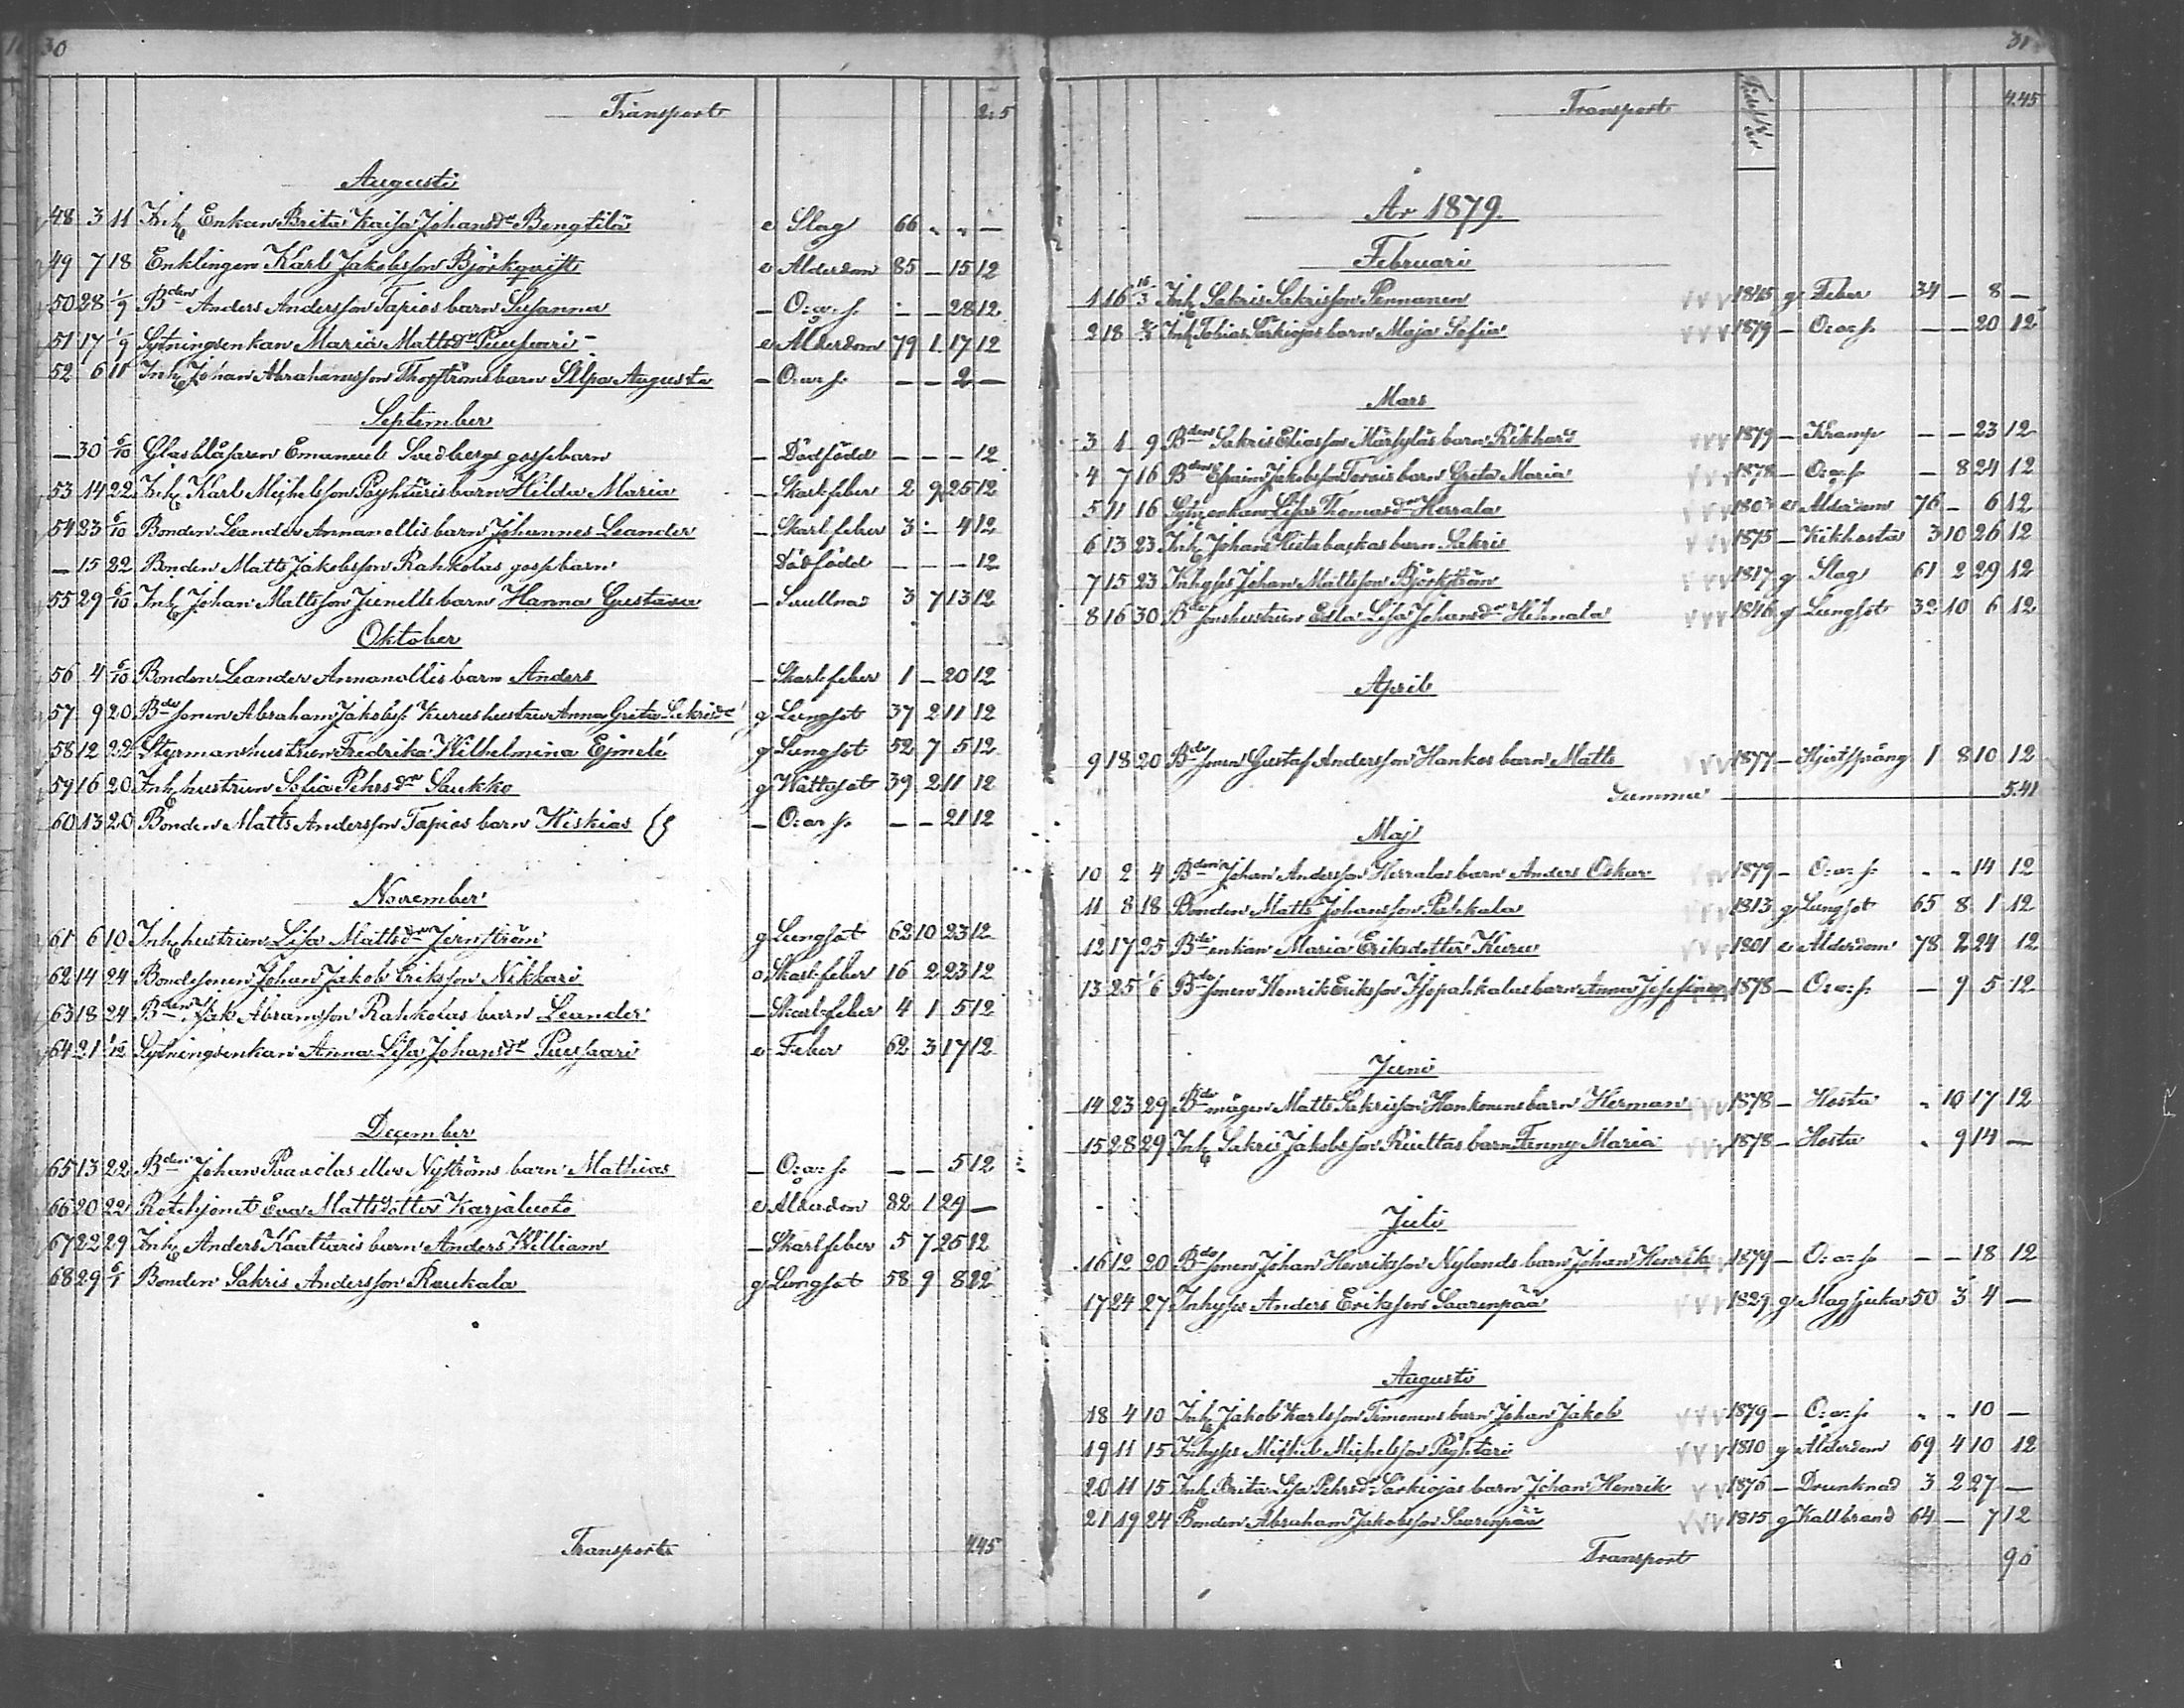 30
Transport 2.5
Augusti
48 3 11 Inh Enkan Brita Kaisa Johansdr Bengtilä e Slag 66 " " —
49 7 18 Enklingen Karl Jakobsson Björkqvist e Ålderdom 85 — 15 12
50 28 1/9 Bden Anders Andersson Tapios barn Susanna — O:a:s. — — 28 12
51 17 1/9 Sytningsenkan Maria Mattsdr Puusaari e Ålderdom 79 1 17 12
52 6 11 Inh Johan Abrahamsson Thorströms barn Elsa Augusta — O:a:s. — — 2 —
September
— 30 6/10 Glasblåsaren Emanuel Svedbergs gossbarn — Dödfödd — — — 12
53 14 22 Inh Karl Michelsson Pöyhtäris barn Hilda Maria — Skarl.feber 2 9 25 12
54 23 6/10 Bonden Leander Annanollis barn Johannes Leander — Skarl.feber 3 — 4 12
— 15 22 Bonden Matts Jakobsson Rahkolas gossbarn Dödfödd — — — 12
55 29 6/10 Inh Johan Mattsson Junells barn Hanna Gustava — Svullnad 3 7 13 12
Oktober
56 4 6/10 Bonden Leander Annanollis barn Anders — Skarl.feber 1 — 20 12
57 9 20 Bdesonen Abraham Jakobss. Kurus hustru Anna Greta Sakrisdr g Lungsot 37 2 11 12
58 12 22 Styrmanshustrun Fredrika Wilhelmina Ejmelé g Lungsot 52 7 5 12
59 16 20 Inh hustrun Sofia Pehrsdr Saukko g Wattusot 39 2 11 12
60 13 20 Bonden Matts Andersson Tapios barn Hiskias — O:a:s. — — 21 12
November
61 6 10 Inh hustrun Lisa Mattsdr Jernström g Lungsot 62 10 23 12
62 14 24 Bondesonen Johan Jakob Eriksson Nikkari o Skarl.feber 16 2 23 12
63 18 24 Bden Jak Abramsson Rahkolas barn Leander — Skarl.feber 4 1 5 12
64 21 1/12 Sytningsenkan Anna Lisa Johansdr Puusaari e Feber 62 3 17 12
December
65 13 22 Bden Johan Paavolas eller Nyströms barn Mathias — O:a:s. — — 5 12
66 20 22 Rotehjonet Eva Mattsdotter Karjaluoto e Ålderdom 82 1 29 —
67 22 29 Inh Anders Kaattaris barn Anders William — Skarl.feber 5 7 25 12
68 29 6/1 Bonden Sakris Andersson Raukala g Lungsot 58 9 8 22
Transport 4.45
31
Transport 4.45
År 1879.
Februari
1 16 16/3 Inh Sakris Sakrisson Pennanen 1845 g Feber 34 — 8 —
2 18 Inh Tobias Särkiojas barn Maja Sofia 1879 — O:a:s. — — 20 12
Mars
3 1 9 Bden Sakris Eliasson Märsyläs barn Rikhard 1879 — Kramp — — 23 12
4 7 16 Bden Efraim Jakobsson Torvis barn Greta Maria 1878 — O:a:s. — 8 24 12
5 11 16 Sytn.enkan Lisa Thomasdr Herrala 1803 e Ålderdom 76 — 6 12
6 13 23 Inh Johan Hietabackas barn Sakris 1875 — Kikhosta 3 10 26 12
7 15 23 Inhyses Johan Mattsson Björkström 1817 g Slag 61 2 29 12
8 16 30 Bdesonshustrun Edla Lisa Johansdr Hihnala 1846 g Lungsot 32 10 6 12
April
9 18 20 Bdesonen Gustaf Andersson Hankos barn Matts 1877 — Hjertsprång 1 8 10 12
Summa 5.41
Maj
10 2 4 Bden Johan Andersson Herralas barn Anders Oskar 1879 — O:a:s. " " 14 12
11 8 18 Bonden Matts Johansson Pahkala 1813 g Lungsot 65 8 1 12
12 17 25 Bdeenkan Maria Eriksdotter Kuru 1801 e Ålderdom 78 2 24 12
13 25 6 Bdesonen Henrik Eriksson Isopahkalas barn Anna Josefina 1878 — O:a:s. — 9 5 12
Juni
14 23 29 Bdemågen Matts Sakrisson Honkonens barn Herman 1878 — Hosta " 10 17 12
15 28 29 Inh Sakris Jakobsson Riuttas barn Fanny Maria 1878 — Hosta " 9 14 —
Juli
16 12 20 Bdesonen Johan Henriksson Nylands barn Johan Henrik 1879 — O:a:s. — — 18 12
17 24 27 Inhyses Anders Eriksson Saarenpää 1829 g Magsjuka 50 3 4 —
Augusti
18 4 10 Inh Jakob Karlsson Timonens barn Johan Jakob 1879 — O:a:s. " " 10 —
19 11 15 Inhyses Michel Michelsson Pöyhtäri 1810 g Ålderdom 69 4 10 12
20 11 15 Inh Brita Lisa Pehrsdr Särkiojas barn Johan Henrik 1876 — Drunknad 3 2 27 —
21 19 24 Bonden Abraham Jakobsson Saarenpää 1815 g Kallbrand 64 — 7 12
Transport 96